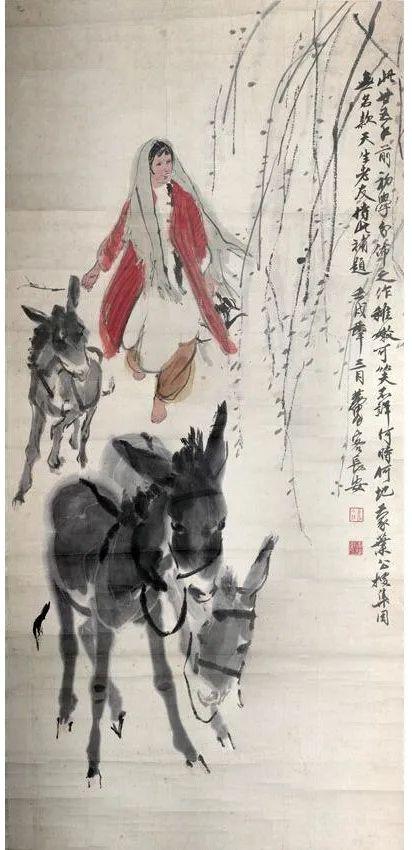 此廿五年前初學之作稚嫩可笑不何時何地蒙葉公集因
無名款天生老友持此補題 壬戌三月黄胄客長安